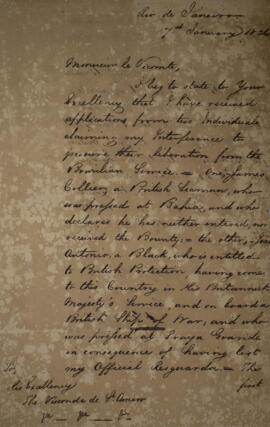 Rio de Janeiro
7th January 182
Monsieur le Vicomte,
I beg to state to Your
Excellency that I have received
applications from two Individuals
claiming my Interference to
procure their liberation from the
Brazilian Service. = One, James
Collier, a British Seaman, who
was pressed at Bahia, and who
declares he has neither entered, nor
received the Bounty; = the other,
Antonio, a Black, who is entitled
to British Protection, having come
to this Country in His Britannick
Majesty's Service, and on board a
British Ship of War, and who
was pressed at Praya Grande
in consequence of having lost
my Official Resguardo. = The
first
His Excellency
The Viscount de St Amaro